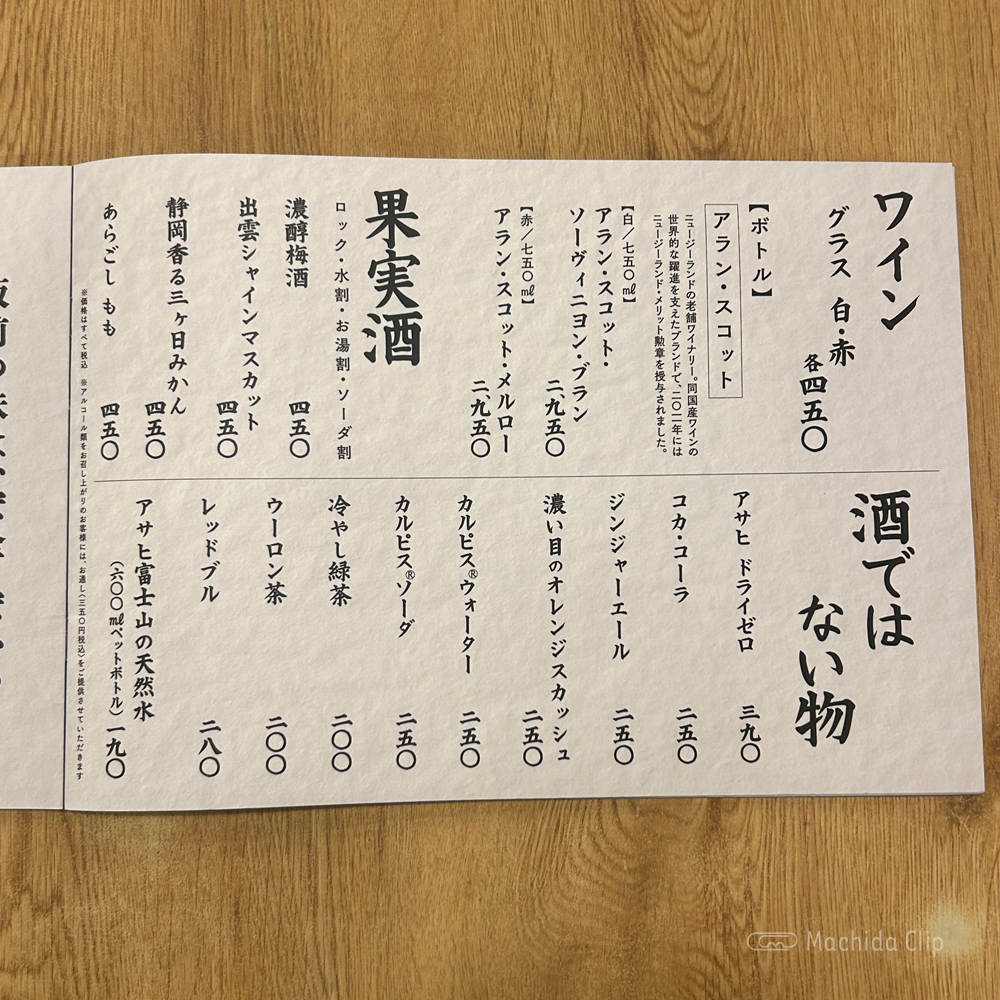 ワイン
グラス 白・赤
各四五〇
【ボトル】
アラン・スコット
ニュージーランドの老舗ワイナリー。同国産ワインの
世界的な躍進を支えたブランドで、二〇一一年には
ニュージーランド・メリット勲章を授与されました。
【白/七五〇㎖】
アラン・スコット・
ソーヴィニヨン・ブラン
二、九五〇
【赤/七五〇㎖】
アラン・スコット・メルロー
二、九五〇
果実酒
ロック・水割・お湯割・ソーダ割
濃醇梅酒 四五〇
出雲シャインマスカット 四五〇
静岡香る三ヶ日みかん 四五〇
あらごし もも 四五〇
酒では
ない物
アサヒ ドライゼロ 三九〇
コカ・コーラ 二五〇
ジンジャーエール 二五〇
濃い目のオレンジスカッシュ 二五〇
カルピス®ウォーター 二五〇
カルピス®ソーダ 二五〇
冷やし緑茶 二〇〇
ウーロン茶 二〇〇
レッドブル 二八〇
アサヒ富士山の天然水
(六〇〇㎖ペットボトル) 一九〇
※価格はすべて税込 ※アルコール類をお召し上がりのお客様には、お通し(三五〇円税込)をご提供させていただきます
Machida Clip